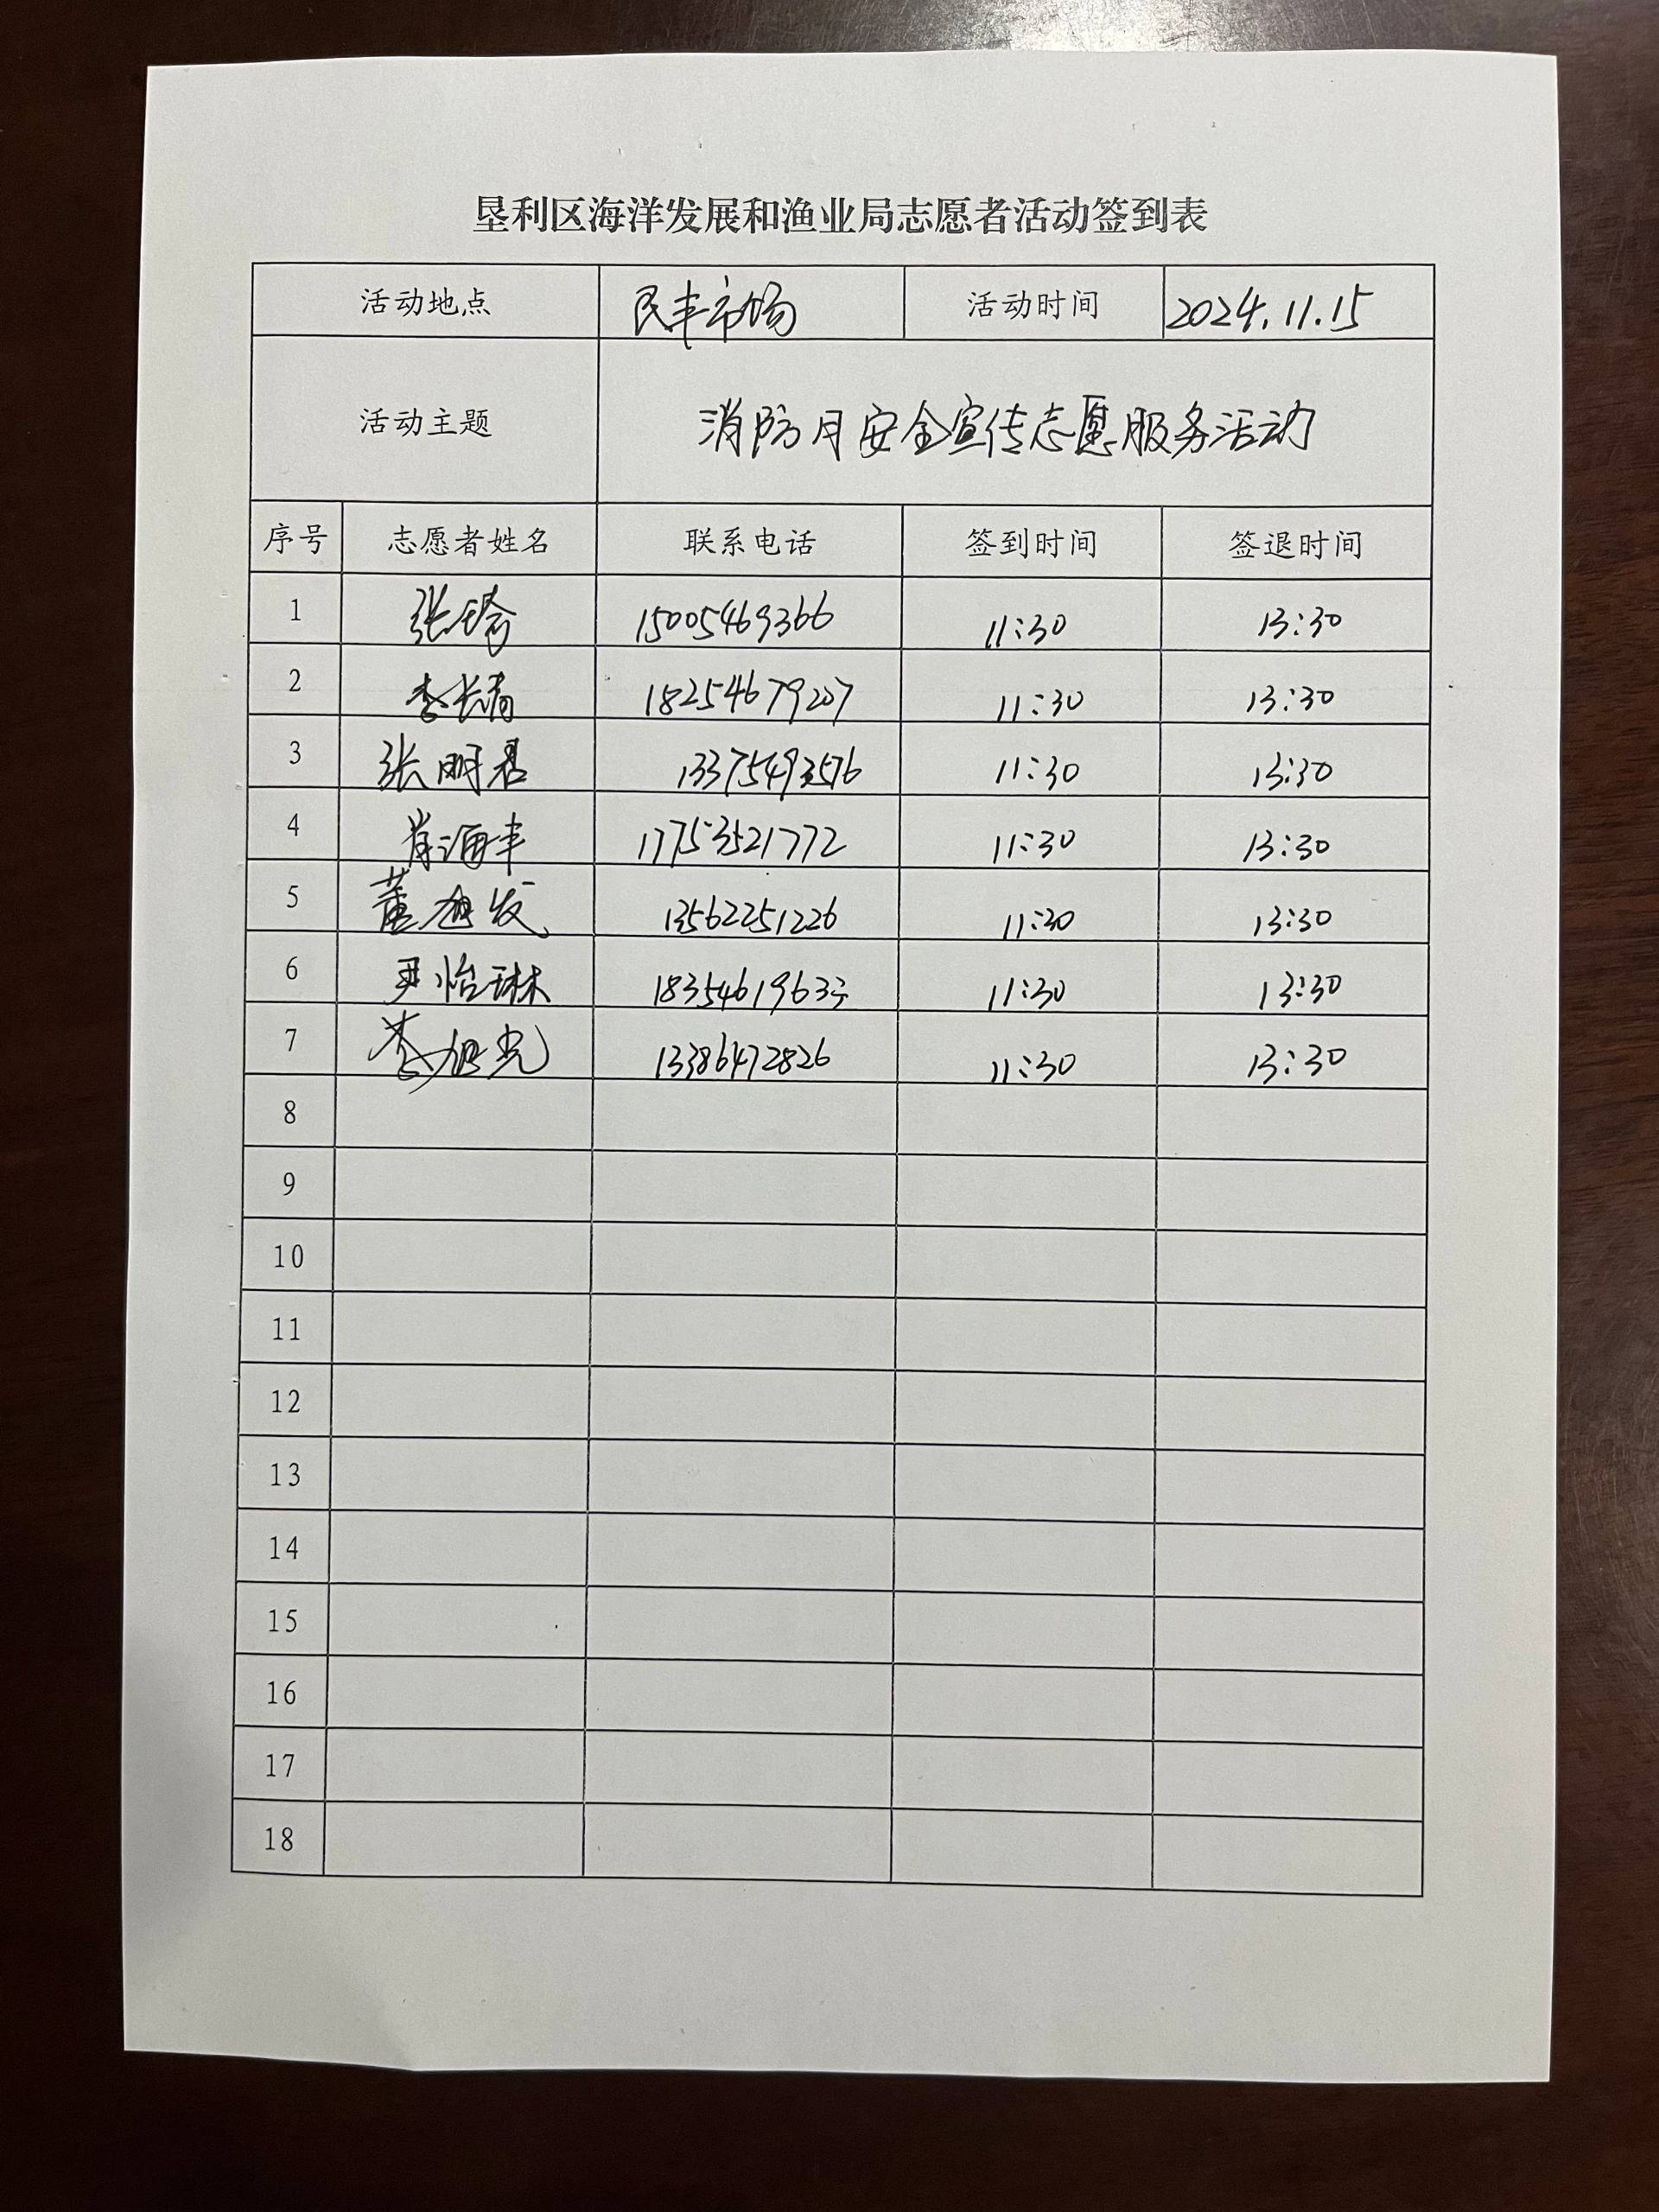 垦利区海洋发展和渔业局志愿者活动签到表
活动地点 民丰市场 活动时间 2024.11.15
活动主题 消防月安全宣传志愿服务活动
序号 志愿者姓名 联系电话 签到时间 签退时间
1 15005469366 11:30 13:30
2 李长青 18254679207 11:30 13:30
3 张明君 13375493576 11:30 13:30
4 肖海丰 17753521772 11:30 13:30
5 13562251226 11:30 13:30
6 尹怡琳 11:30 13:30
7 李旭光 13386472826 11:30 13:30
8
9
10
11
12
13
14
15
16
17
18